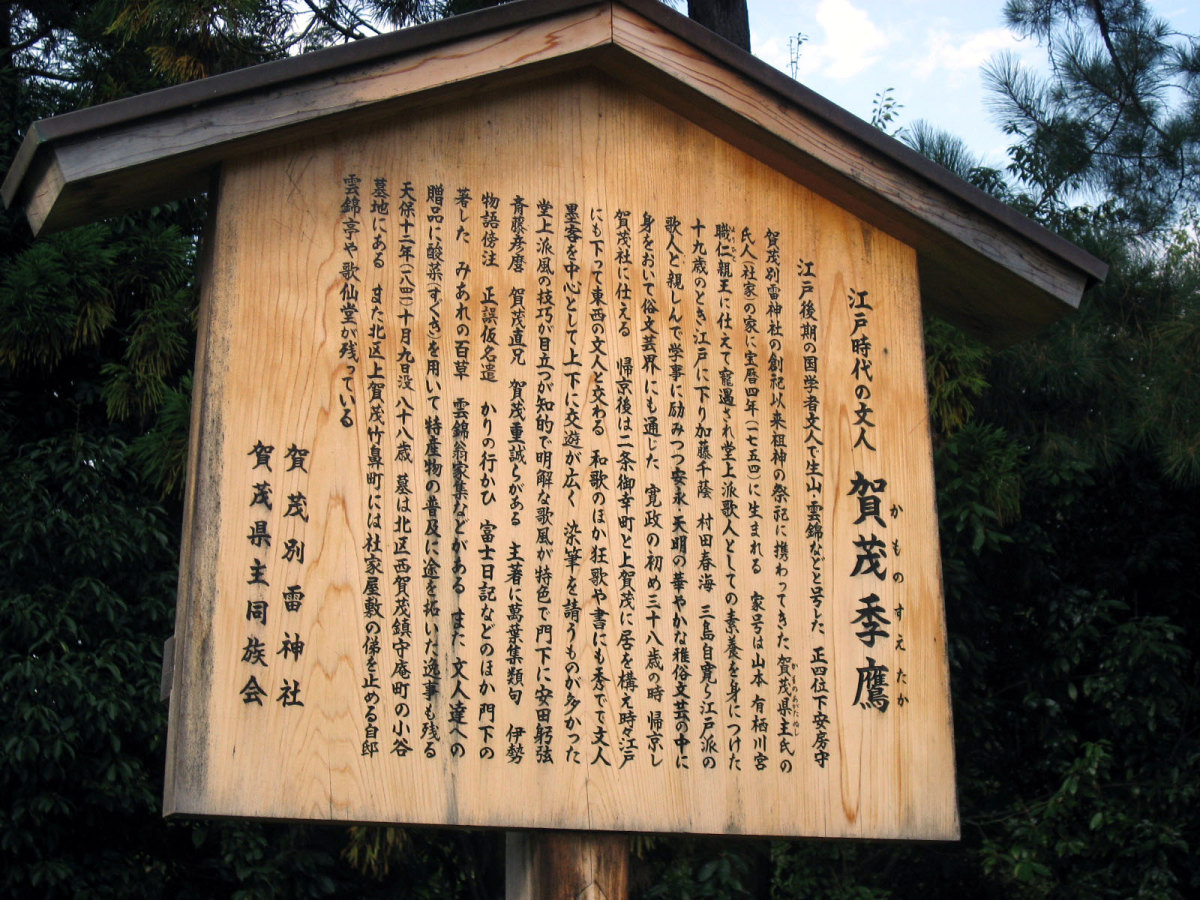 江戸時代の文人 賀茂季鷹
かものすえたか
江戸後期の国学者文人で生山・雲錦などと号した 正四位下安房守
賀茂別雷神社の創祀以来祖神の祭祀に携わってきた賀茂県主氏の
かものあがたぬし
氏人(社家)の家に宝暦四年(一七五四)に生まれる 家号は山本 有栖川宮
職仁親王に仕えて寵遇され堂上派歌人としての素養を身につけた
よりひと
十九歳のとき江戸に下り加藤千蔭 村田春海 三島自寛ら江戸派の
歌人と親しんで学事に励みつつ安永・天明の華やかな雅俗文芸の中に
身をおいて俗文芸界にも通じた 寛政の初め三十八歳の時 帰京し
賀茂社に仕える 帰京後は二条御幸町と上賀茂に居を構え時々江戸
にも下って東西の文人と交わる 和歌のほか狂歌や書にも秀でて文人
墨客を中心として上下に交遊が広く 染筆を請うものが多かった
堂上派風の技巧が目立つが知的で明解な歌風が特色で門下に安田躬弦
斉藤彦麿 賀茂直兄 賀茂重誠らがある 主著に萬葉集類句 伊勢
物語傍注 正誤仮名遣 かりの行かひ 富士日記などのほか門下の
著した みあれの百草 雲錦翁家集などがある また 文人達への
贈品に酸菜(すぐき)を用いて 特産物の普及に途を拓いた逸事も残る
天保十二年(一八四一)十月九日没 八十八歳 墓は北区西賀茂鎮守庵町の小谷
墓地にある また北区上賀茂竹鼻町には社家屋敷の俤を止める自邸
雲錦亭や歌仙堂が残っている
賀茂別雷神社
賀茂県主同族会